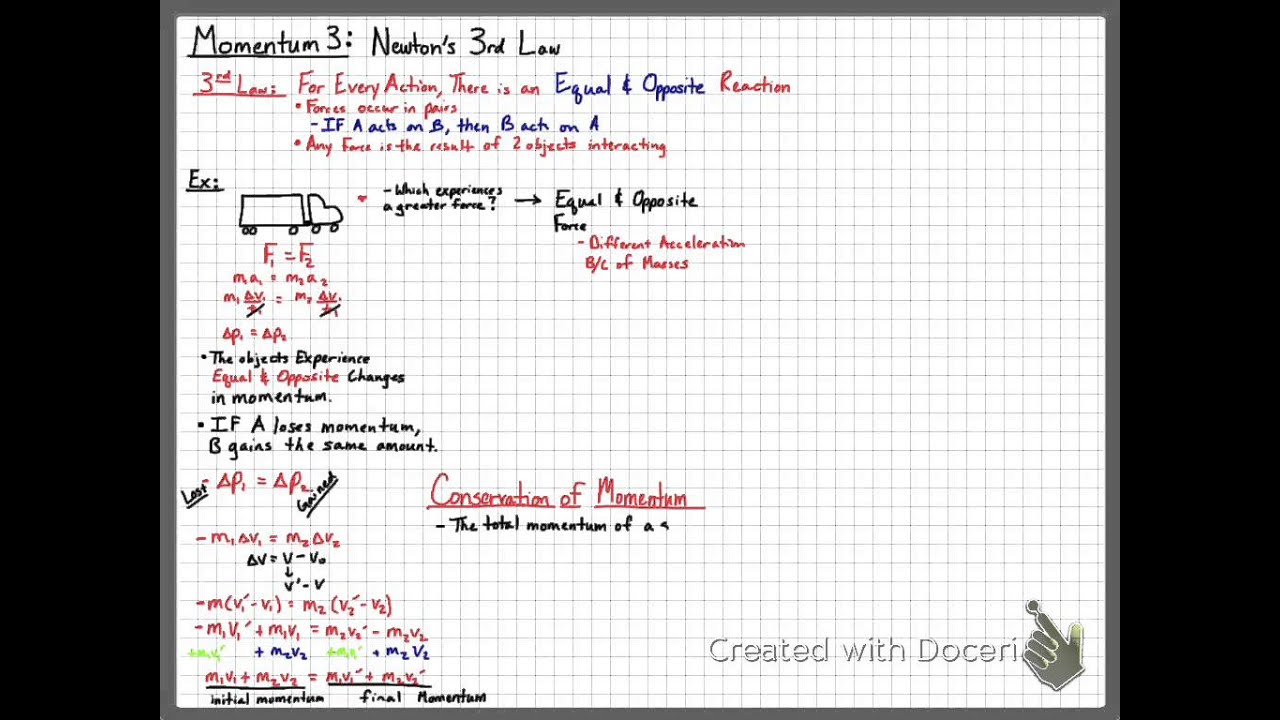 Momentum 3: Newton's 3rd Law
3rd Law: For Every Action, There is an Equal & Opposite Reaction
• Forces occur in pairs
- IF A acts on B, then B acts on A
• Any Force is the result of 2 objects interacting
Ex:
- Which experiences
a greater force? → Equal & Opposite
Force
- Different Acceleration
B/C of Masses
F₁ = F₂
m₁a₁ = m₂a₂
m₁ Δv₁/t₁ = m₂ Δv₁/t₁
Δp₁ = Δp₂
• The objects Experience
Equal & Opposite Changes
in momentum.
• IF A loses momentum,
B gains the same amount.
Lost - Δp₁ = Δp₂ Gained
Conservation of Momentum
- The total momentum of a s
- m₁Δv₁ = m₂Δv₂
Δv = v - v₀
↓
v' - v
- m(v₁' - v₁) = m₂(v₂' - v₂)
- m₁v₁' + m₁v₁ = m₂v₂' - m₂v₂
+m₁v₁' + m₂v₂ +m₁v₁' + m₂v₂
m₁v₁ + m₂v₂ = m₁v₁' + m₂v₂'
initial momentum final Momentum
Created with Doceri